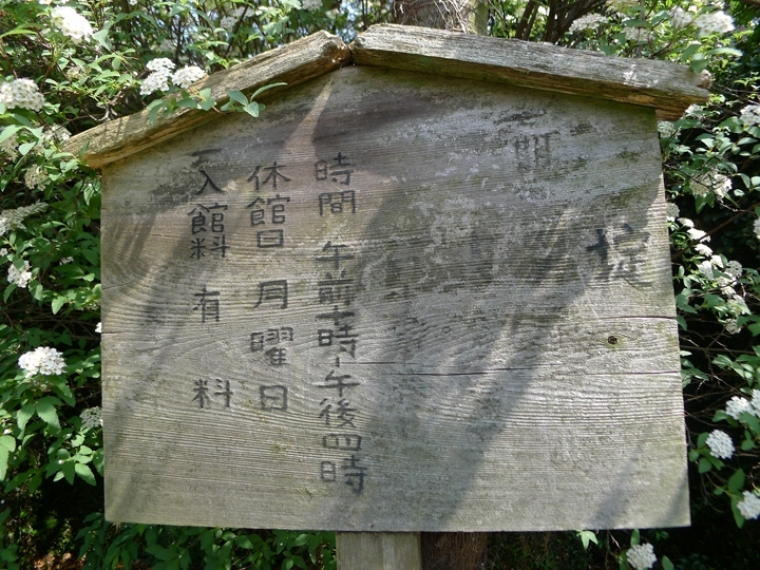 掟
開
時間 午前十時~午後四時
休館日 月曜日
一入館料 有料